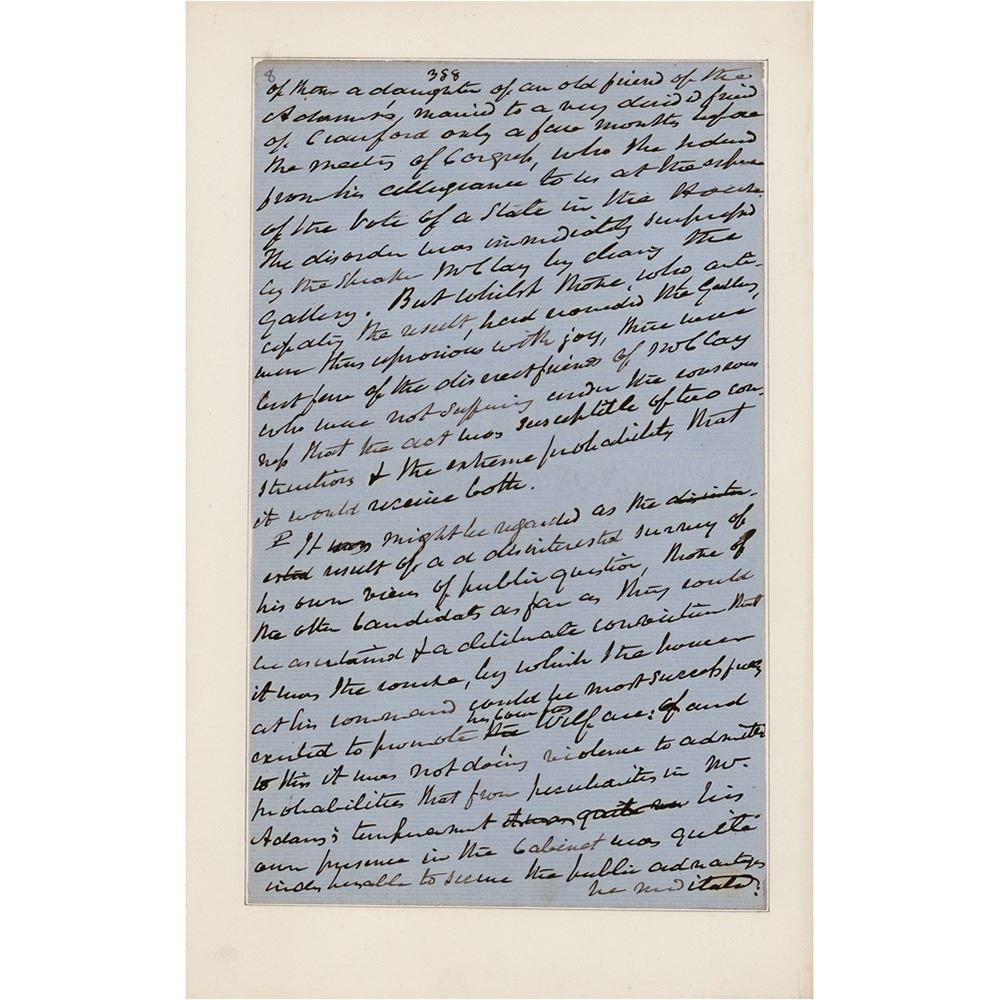 8 388
of them a daughter of an old friend of the
Adams's, married to a very decided friend
of Crawford only a few months before
the meeting of Congress, who she induced
from his allegiance to us at the expense
of the vote of a State in the House.
The disorder was immediately suppressed
by the Speaker Mr Clay by clearing the
gallery. But whilst those, who anti-
cipating the result, had crowded the Gallery,
were thus uproarious with joy, there were
but few of the discreet friends of Mr Clay
who were not suffering under the conscious
ness that the act was susceptible of two con-
structions & the extreme probability that
it would receive both.
P It was might be regarded as the disinter-
ested result of a d disinterested survey of
his own views of public question, those of
the other Candidates as far as they could
be ascertained & a deliberate conviction that
it was the course, by which the power
at his command could be most successfully
exerted to promote the Welfare: of and
his Countrys
to this it was not doing violence to admitted
probabilities that from peculiarities in Mr.
Adams's temperament it was quite his
own presence in the Cabinet was quite
indispensable to secure the public advantages
he meditated.